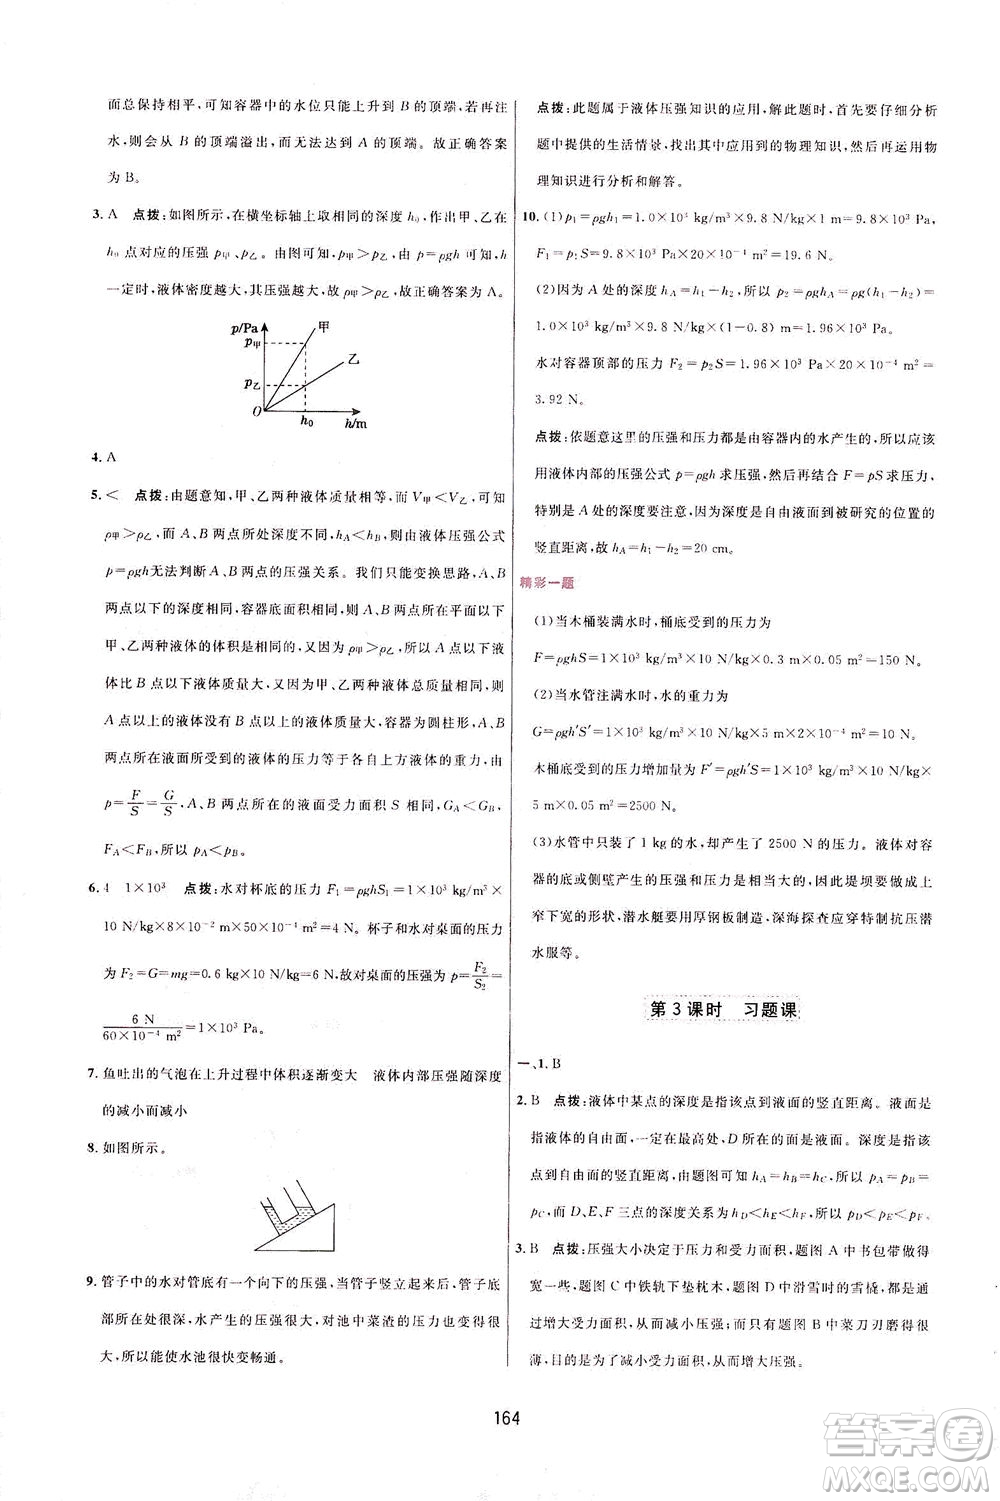 面总保持相平,可知容器中的水位只能上升到 B 的顶端,若再注
水,则会从 B 的顶端溢出,而无法达到 A 的顶端。故正确答案
为 B。
3. A 点拨:如图所示,在横坐标轴上取相同的深度 h₀,作出甲、乙在
h₀ 点对应的压强 p甲、p乙。由图可知,p甲>p乙,由 p=ρgh 可知,h
一定时,液体密度越大,其压强越大,故 ρ甲>ρ乙,故正确答案为 A。
p/Pa
甲
p甲
乙
p乙
O
h₀
h/m
4. A
5. < 点拨:由题意知,甲、乙两种液体质量相等,而 V甲<V乙,可知
ρ甲>ρ乙,而 A、B 两点所处深度不同,hA<hB,利用液体压强公式
p=ρgh无法判断 A、B 两点的压强关系。我们只能变换思路,A、B
两点以下的深度相同,容器底面积相同,故 A、B 所在平面以下
甲、乙两种液体的体积是相同的,ρ甲>ρ乙,故 A 点以下的甲液
体比 B 点以下的乙液体质量大。又因为甲、乙两种液体质量相等,
故 A 点以上的液体比 B 点以上的液体质量大,容器为圆柱形,A、B
两点所在液面所受到的液体的压力等于各自上方液体的重力,由
p=F/S=G/S,A、B 两点所在的液面受力面积 S 相同,GA<GB、
FA<FB,所以 pA<pB。
6. 4 1×10³ 点拨:水对杯底的压力 F₁=ρghS₁=1×10³ kg/m³×
10 N/kg×8×10⁻² m×50×10⁻⁴ m²=4 N。杯子和水对桌面的压力
为 F₂=G=mg=0.6 kg×10 N/kg=6 N,故对桌面的压强 p=F₂/S₂=
6 N/60×10⁻⁴ m²=1×10³ Pa。
7. 鱼吐出的气泡在上升过程中体积逐渐变大 液体内部压强随深度
的减小而减小
8. 如图所示。
9. 管子中的水对管底有一个向下的压强,当管子竖立起来时,管子底
部所在处很深,水产生的压强很大,对池中菜渣的压力也很
大,所以能使水池很快变畅通。
点拨:此题属于液体压强知识的应用,解此题时,首先要仔细分析
题中提供的生活情景,找出其中应用到的物理知识,然后再运用物
理知识进行分析和解答。
10. (1)p₁=ρgh₁=1.0×10³ kg/m³×9.8 N/kg×1 m=9.8×10³ Pa,
F₁=p₁S=9.8×10³ Pa×20×10⁻⁴ m²=19.6 N。
(2)因为 A 处的深度 hA=h₁-h₂,所以 p₂=ρghA=ρg(h₁-h₂)=
1.0×10³ kg/m³×9.8 N/kg×(1-0.8) m=1.96×10³ Pa。
水对容器顶部的压力 F₂=p₂S=1.96×10³ Pa×20×10⁻⁴ m²=
3.92 N。
点拨:依题意这里的压强和压力都是由容器内的水产生的,所以应该
用液体内部的压强公式 p=ρgh 求压强,然后再结合 F=pS 求压力,
特别是 A 处的深度要注意,因为深度是自由液面到被研究的位置的
竖直距离,故 hA=h₁-h₂=20 cm。
精彩一题
(1)当木桶装满水时,桶底受到的压力为
F=ρghS=1×10³ kg/m³×10 N/kg×0.3 m×0.05 m²=150 N。
(2)当水管注满水时,水的重力为
G=ρgh′S′=1×10³ kg/m³×10 N/kg×5 m×2×10⁻⁴ m²=10 N。
木桶底受到的压力增加量为 F′=ρgh′S=1×10³ kg/m³×10 N/kg×
5 m×0.05 m²=2500 N。
(3)水管中只装了 1 kg的水,却产生了 2500 N的压力。液体对容
器的底或侧壁产生的压强和压力是相当大的,因此要做成上
窄下宽的形状,潜水艇要用厚钢板制造,深海探查应穿特制抗压潜
水服等。
第 3 课时 习题课
一、1. B
2. B 点拨:液体中某点的深度是指该点到液面的竖直距离。液面是
指液体的自由面,一定在最高处,D 所在的面是液面。深度是指该
点到自由面的竖直距离,由题图可知 hA=hB=hC,所以 pA=pB=
pC,而 D、E、F 三点的深度关系为 hD<hE<hF,所以 pD<pE<pF。
3. B 点拨:压强大小决定于压力和受力面积,题图 A 中书包带做得
宽一些,题图 C 中铁轨下垫枕木,题图 D 中滑雪时的雪橇,都是
通过增大受力面积,从而减小压强;而只有题图 B 中菜刀刃磨得很
薄,目的是为了减小受力面积,从而增大压强。
164
答案圈
MXQE.COM